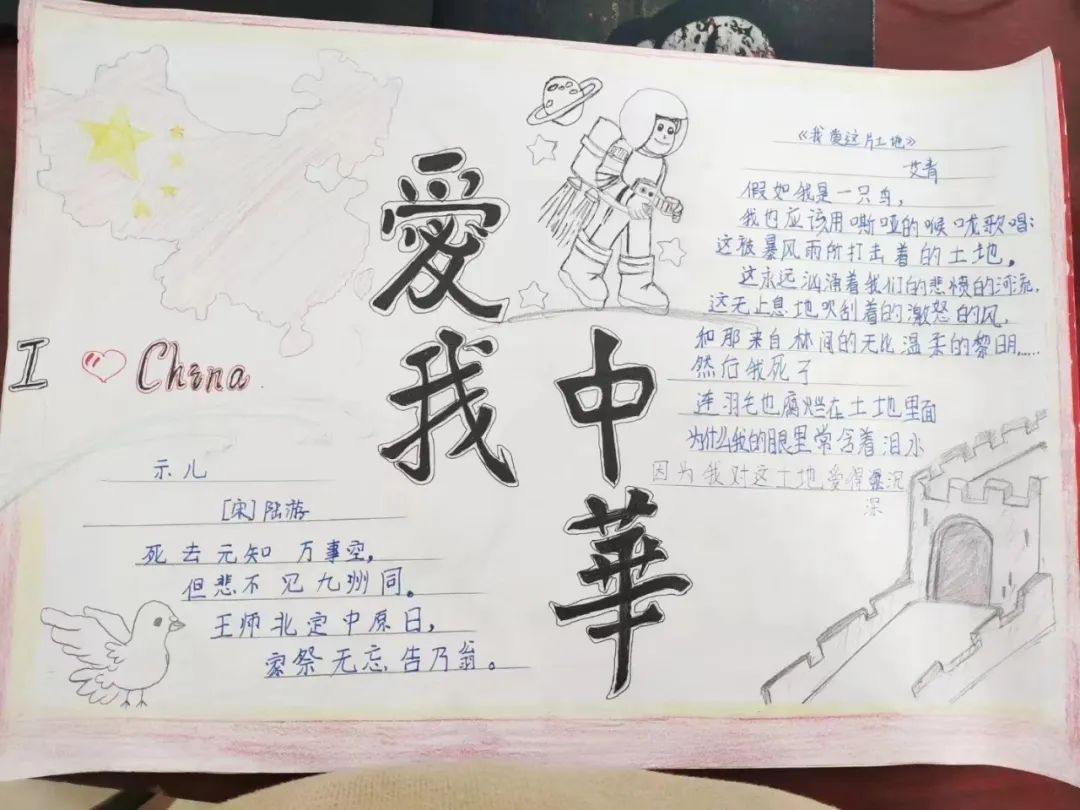 愛我
中華
I China
示儿
[宋]陆游
死去元知万事空,
但悲不见九州同。
王师北定中原日,
家祭无忘告乃翁。
《我爱这片土地》
艾青
假如我是一只鸟,
我也应该用嘶哑的喉咙歌唱:
这被暴风雨所打击着的土地,
这永远汹涌着我们的悲愤的河流,
这无止息地吹刮着的激怒的风,
和那来自林间的无比温柔的黎明……
然后我死了
连羽毛也腐烂在土地里面
为什么我的眼里常含着泪水
因为我对这土地爱得沉
深